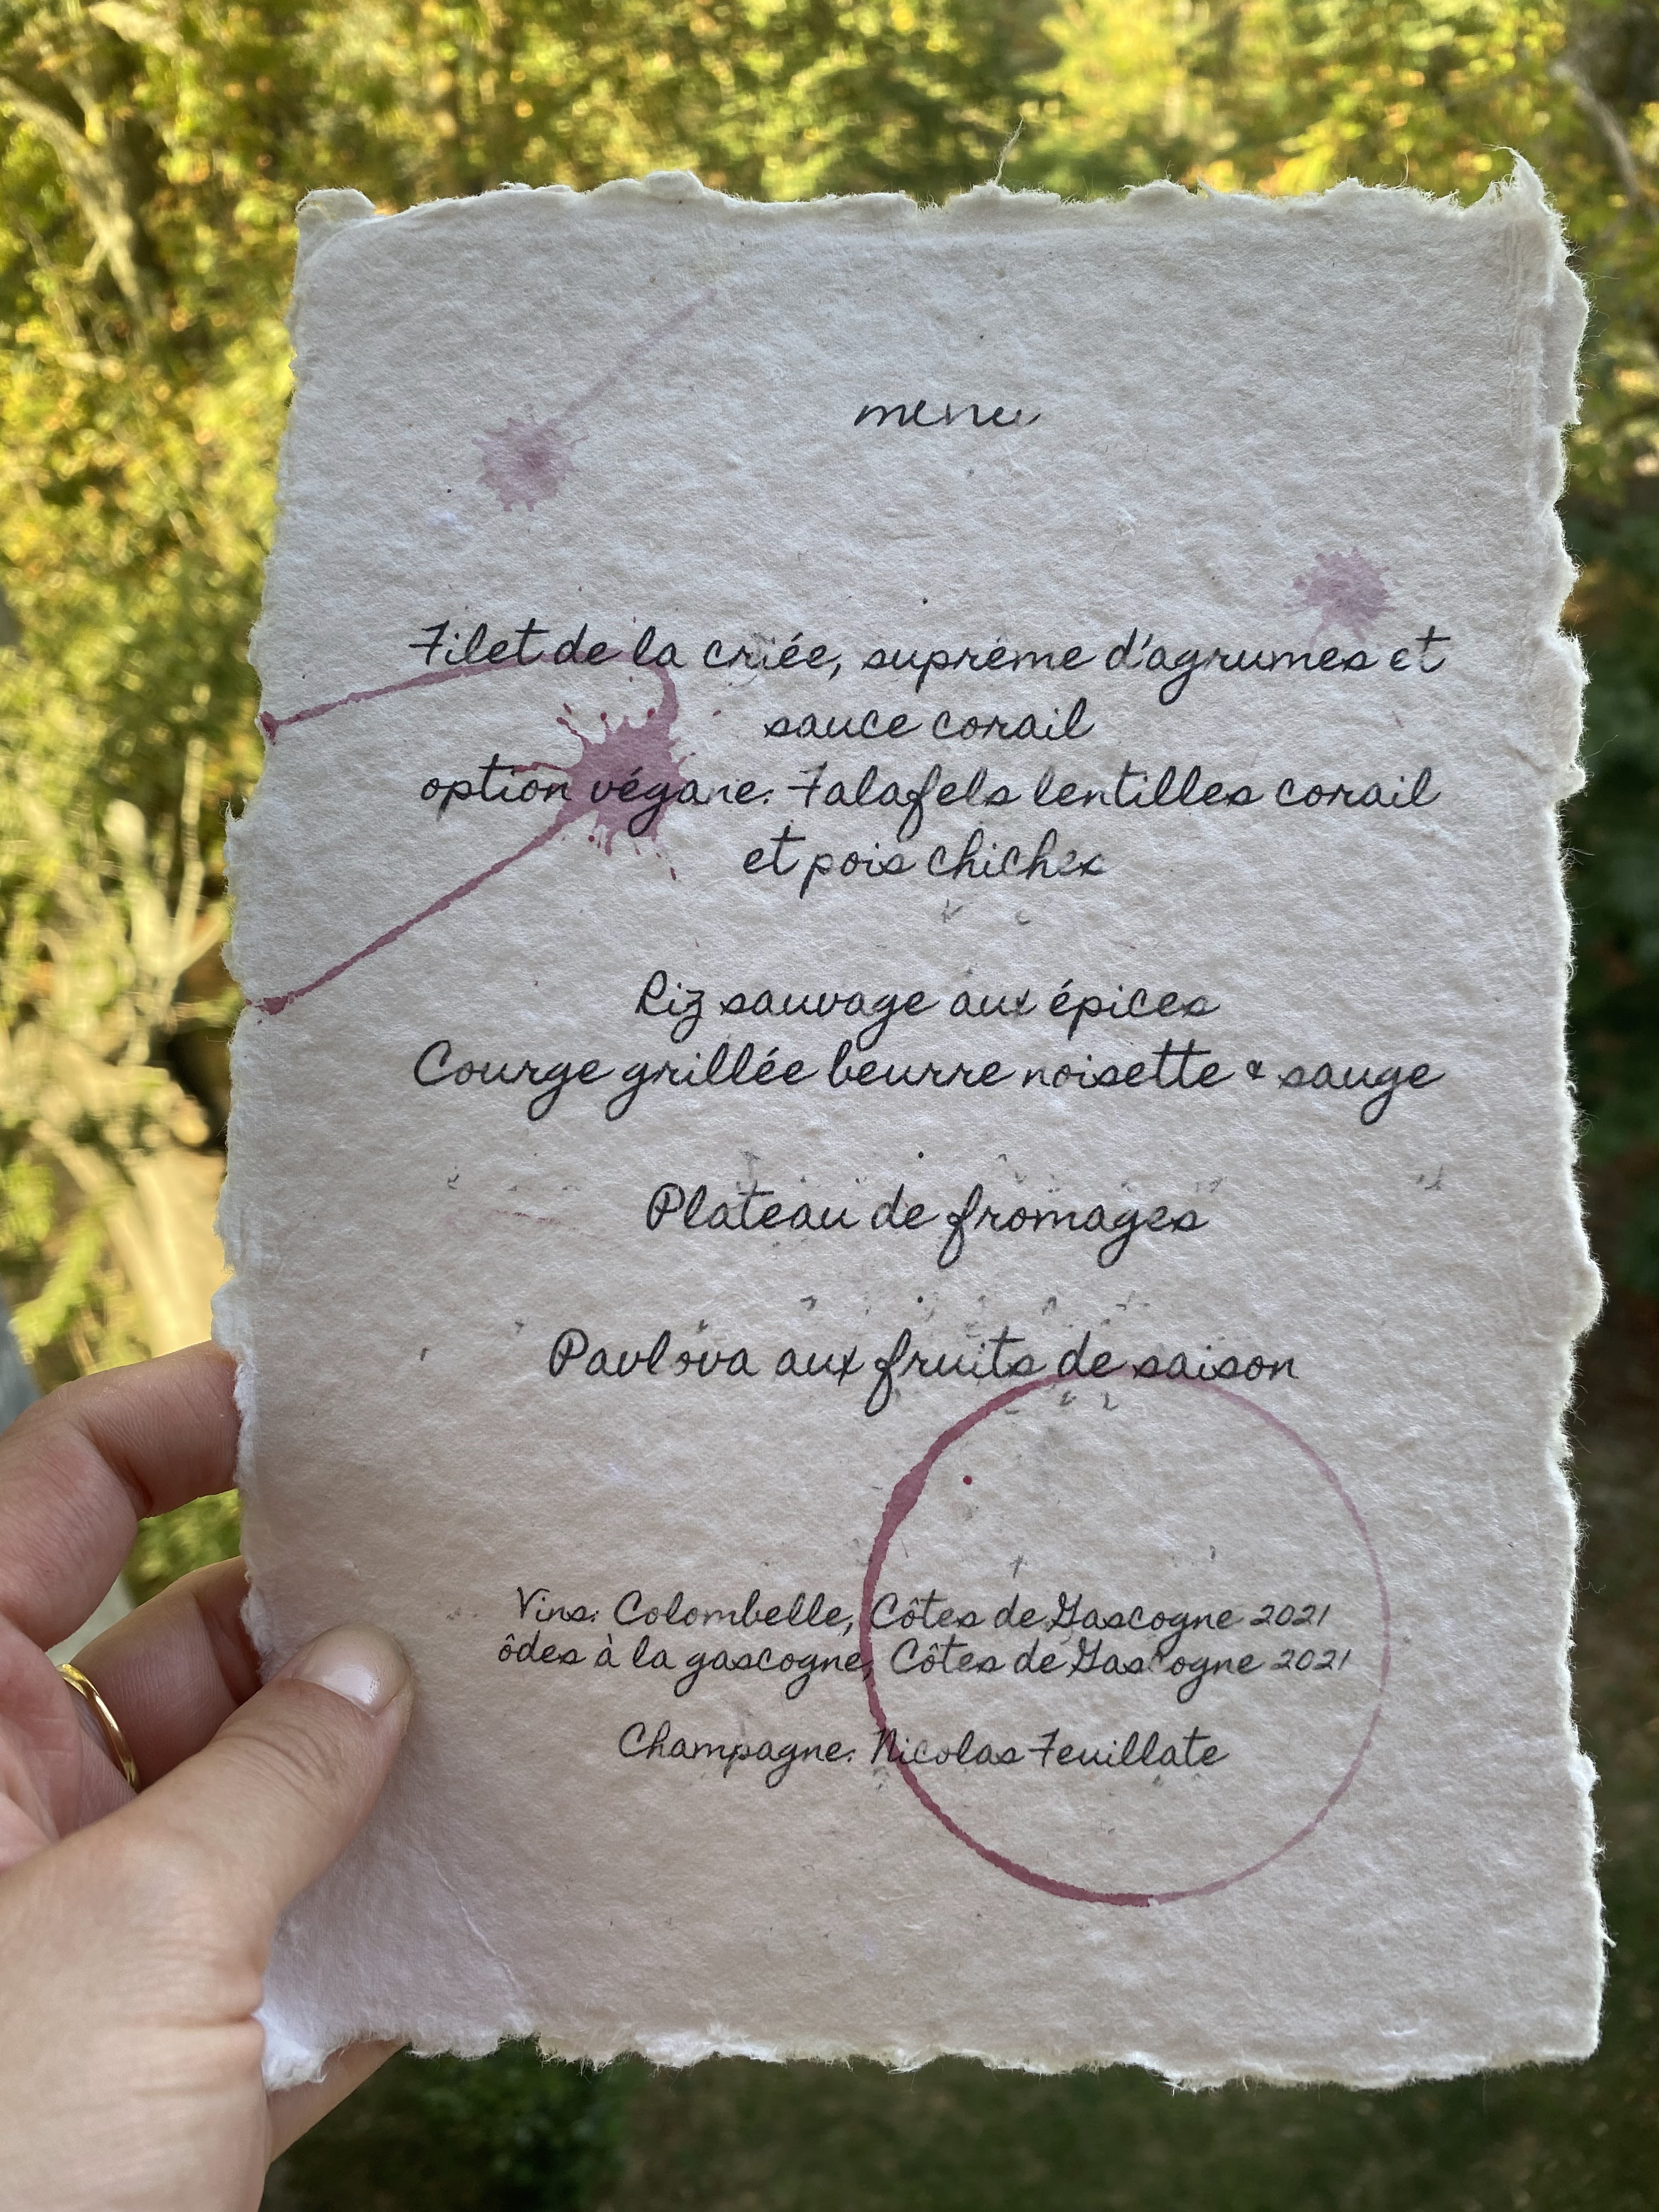 menu
Filet de la criée, suprême d'agrumes et
sauce corail
option végane: Falafels lentilles corail
et pois chiches
Riz sauvage aux épices
Courge grillée beurre noisette & sauge
Plateau de fromages
Pavlova aux fruits de saison
Vins: Colombelle, Côtes de Gascogne 2021
ôdes à la gascogne, Côtes de Gascogne 2021
Champagne: Nicolas Feuillate